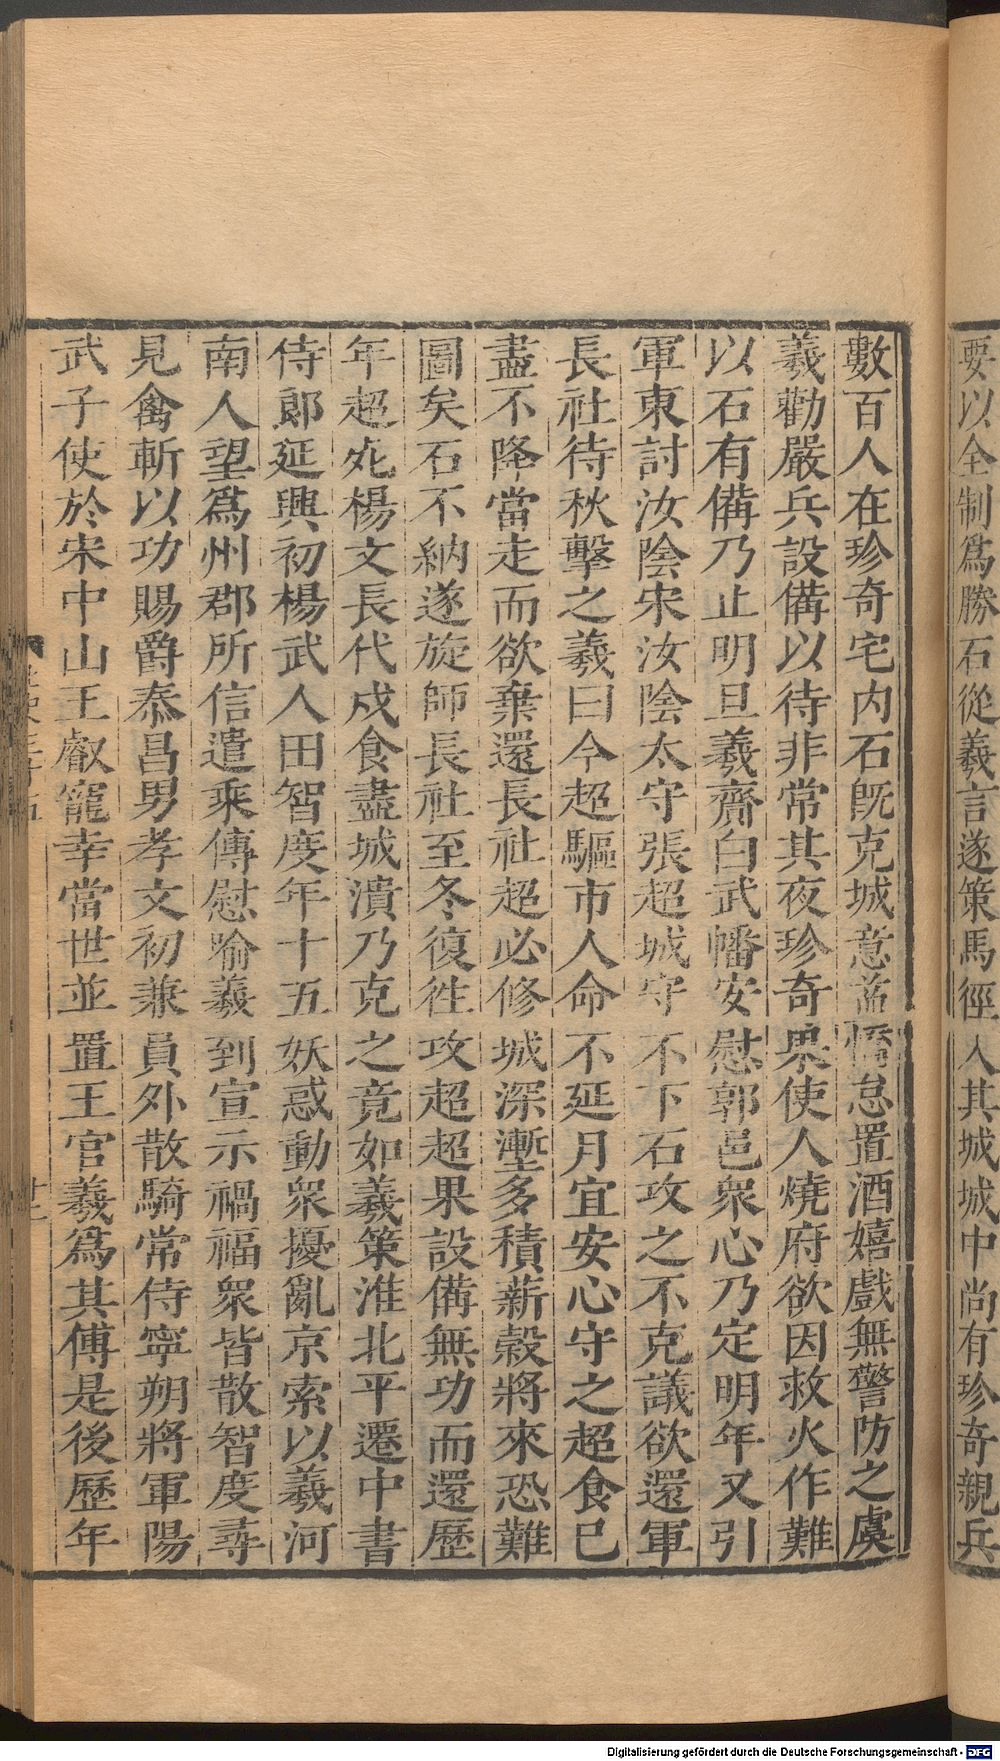 要以全制爲勝石從羲言遂策馬徑入其城城中尚有珍奇親兵
數百人在珍奇宅内石旣克城意益憍怠置酒嬉戲無警防之虞
羲勸嚴兵設備以待非常其夜珍奇果使人燒府欲因救火作難
以石有備乃止明旦羲齎白武幡安慰郭邑衆心乃定明年又引
軍東討汝陰宋汝陰太守張超城守不下石攻之不克議欲還軍
長社待秋擊之羲曰今超驅市人命不延月宜安心守之超食已
盡不降當走而欲棄還長社超必修城深塹多積薪穀將來恐難
圖矣石不納遂旋師長社至冬復徃攻超超果設備無功而還歷
年超死楊文長代戍食盡城潰乃克之竟如羲策淮北平遷中書
侍郎延興初楊武人田智度年十五妖惑動衆擾亂京索以羲河
南人望爲州郡所信遣乘傳慰喻羲到宣示禍福衆皆散智度尋
見禽斬以功賜爵泰昌男孝文初兼員外散騎常侍寧朔將軍陽
武子使於宋中山王叡寵幸當世並置王官羲爲其傅是後歷年